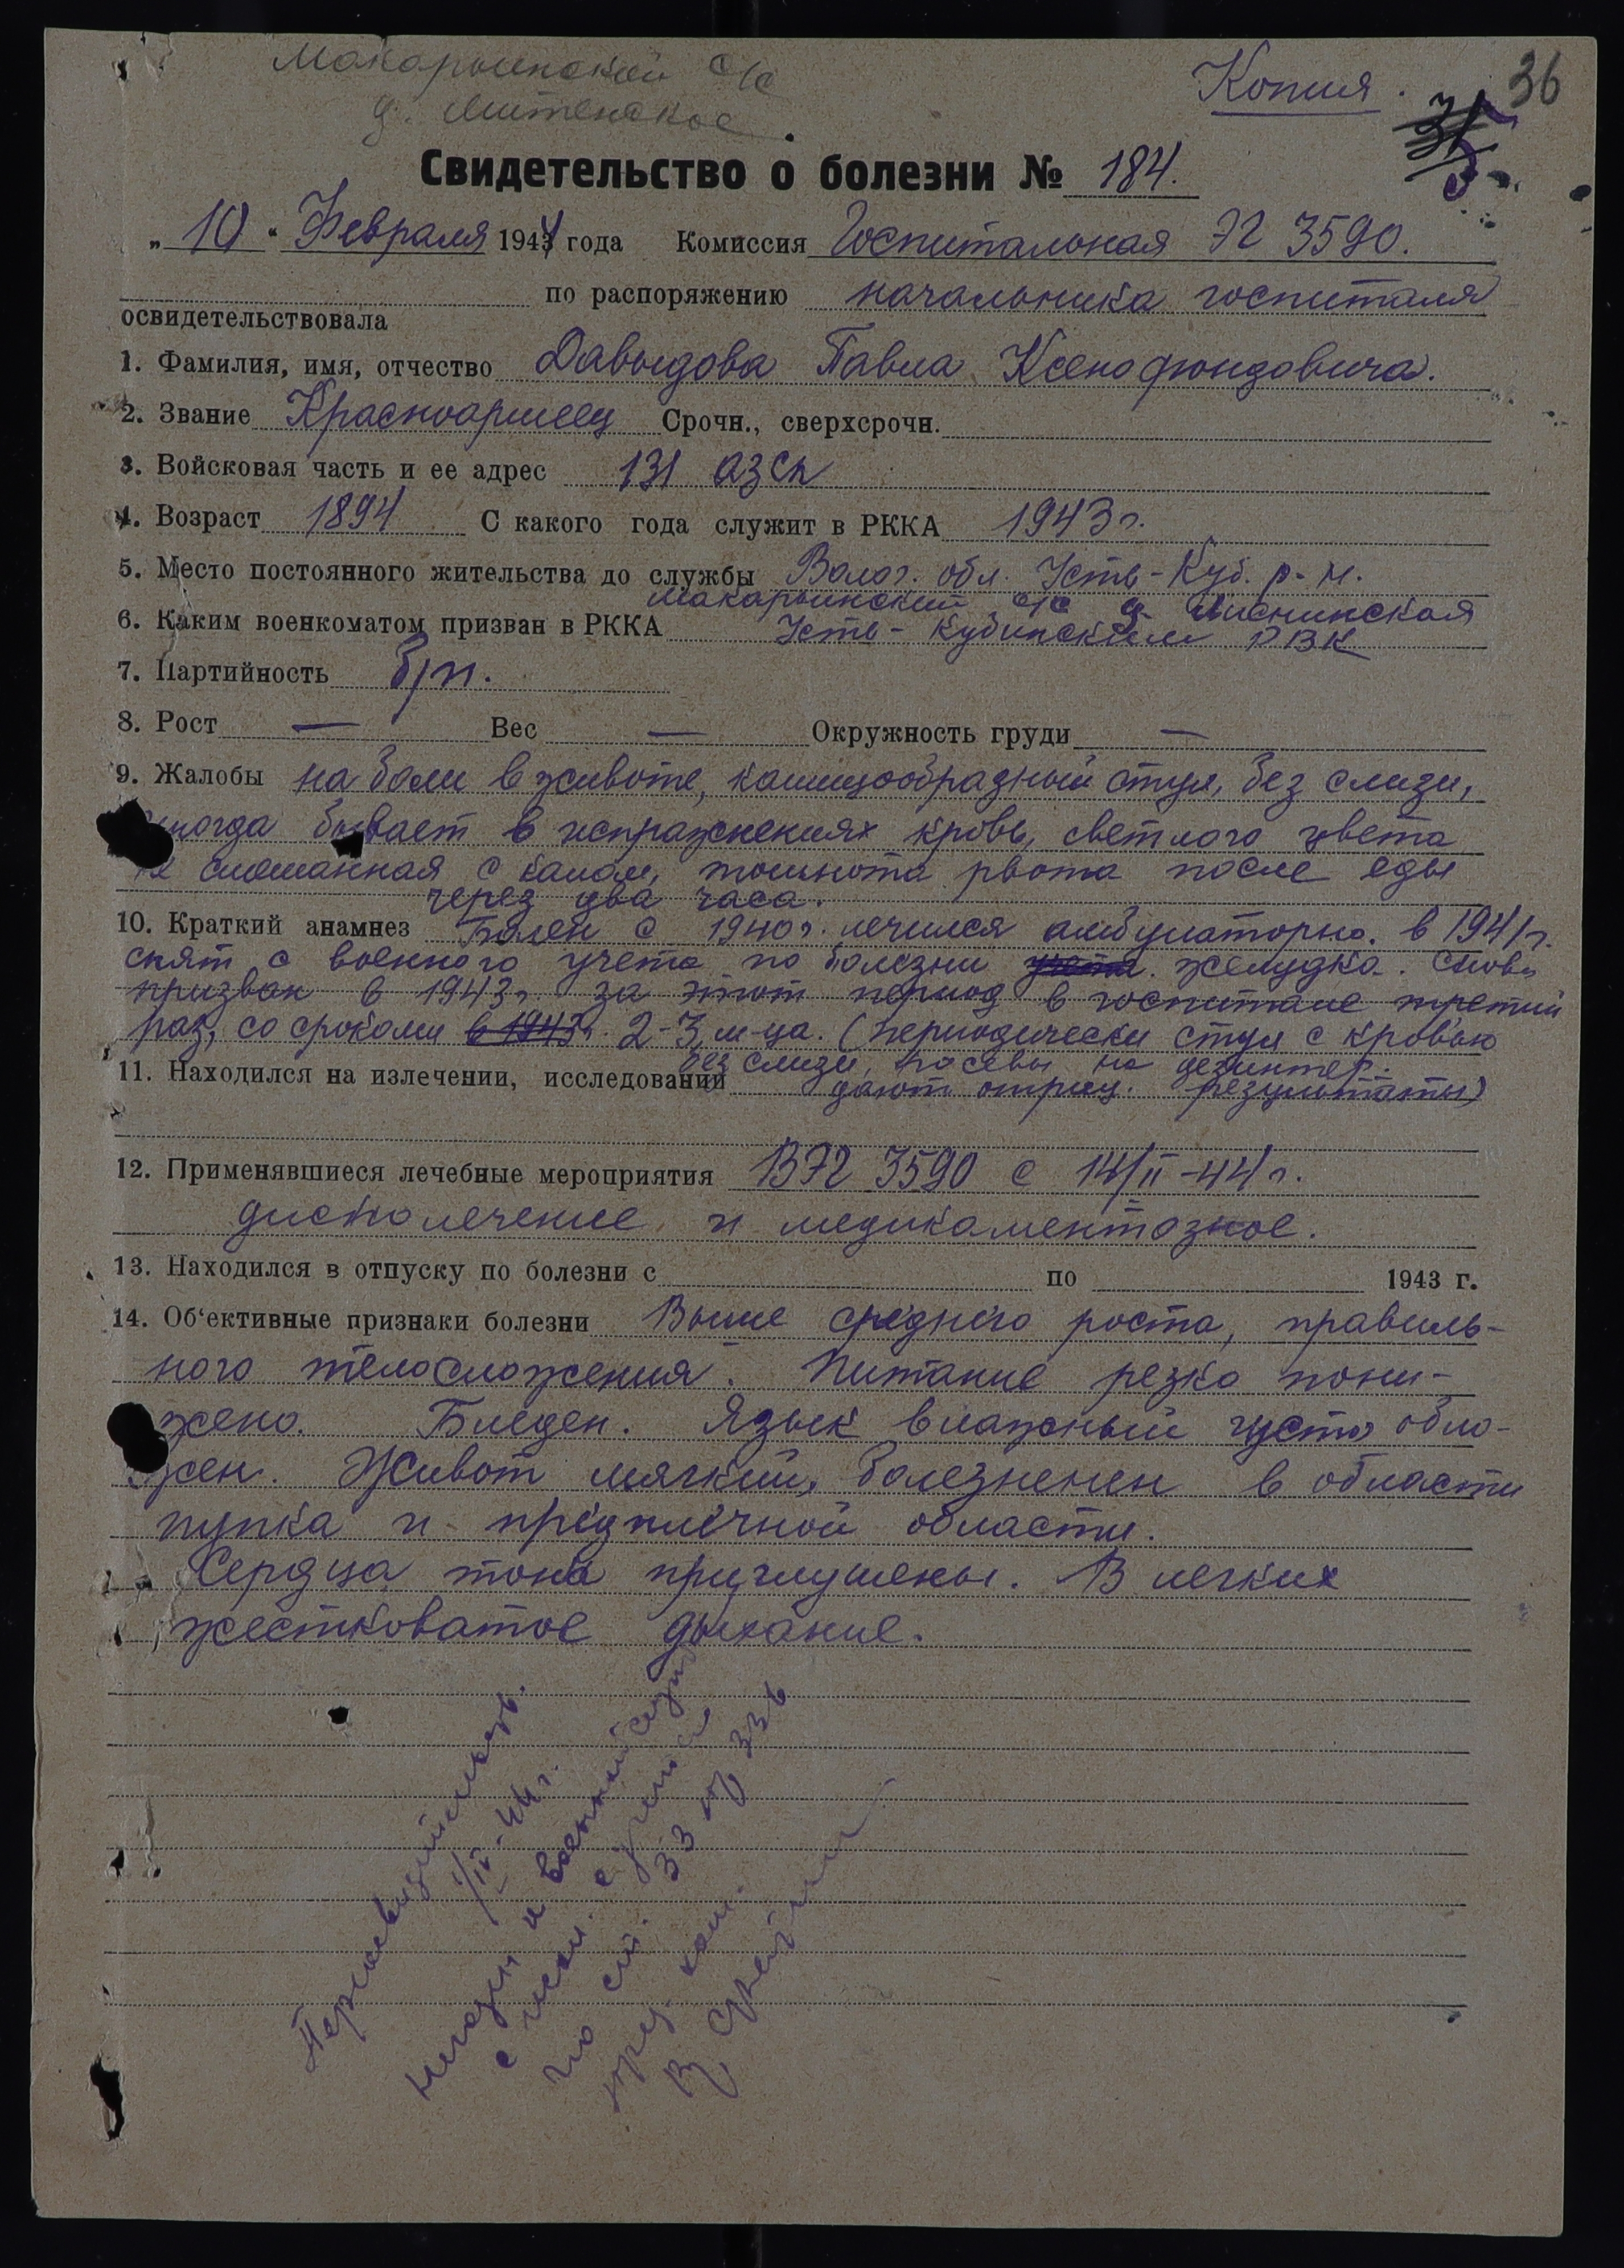 Макарьинский с/с
д. Митенское.
Копия.
36
35
Свидетельство о болезни № 184.
„10“ Февраля 1944 года Комиссия Госпитальная ЭГ 3590.
по распоряжению начальника госпиталя
освидетельствовала
1. Фамилия, имя, отчество Давыдова Павла Ксенофондовича.
2. Звание Красноармеец Срочн., сверхсрочн.
3. Войсковая часть и ее адрес 131 азсп
4. Возраст 1894 С какого года служит в РККА 1943 г.
5. Место постоянного жительства до службы Волог. обл. Усть-Куб. р-н.
Макарьинский с/с д.
6. Каким военкоматом призван в РККА Усть-Кубинским РВК
7. Партийность б/п.
8. Рост — Вес — Окружность груди —
9. Жалобы на боли в животе, кашицообразный стул, без слизи,
иногда бывает в испражнениях кровь, светлого цвета
не смешанная с калом, тошнота рвота после еды
через два часа.
10. Краткий анамнез Болен с 1940 г. лечился амбулаторно. в 1941 г.
снят с военного учета по болезни учета. желудка. Снова
призван в 1943 г. за этот период в госпитале третий
раз, со сроками в 1943 г. 2-3 м-ца. (периодически стул с кровью
без слизи, посевы на дезинтер.
11. Находился на излечении, исследовании дают отриц. результаты)
12. Применявшиеся лечебные мероприятия ВЭГ 3590 с 14/II-44 г.
диетолечение и медикаментозное.
13. Находился в отпуску по болезни с по 1943 г.
14. Об‘ективные признаки болезни Выше среднего роста, правиль-
ного телосложения. Питание резко пони-
жено. Бледен. Язык влажный густо обло-
жен. Живот мягкий, болезненен в области
пупка и предплечной области.
Сердца тона приглушены. В легких
жестковатое дыхание.
Переосвидетельств.
1/IV-44 г.
Негоден к военной служ
с искл. с учета
по ст. 33 пр 336
пред. ком.